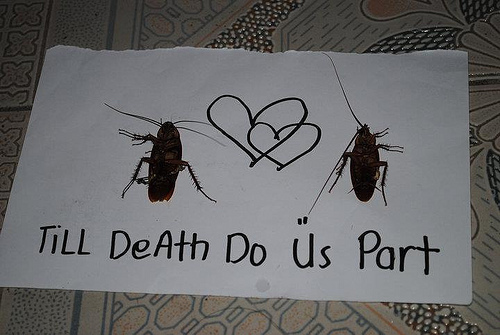 TiLL DeAth Do Üs Part